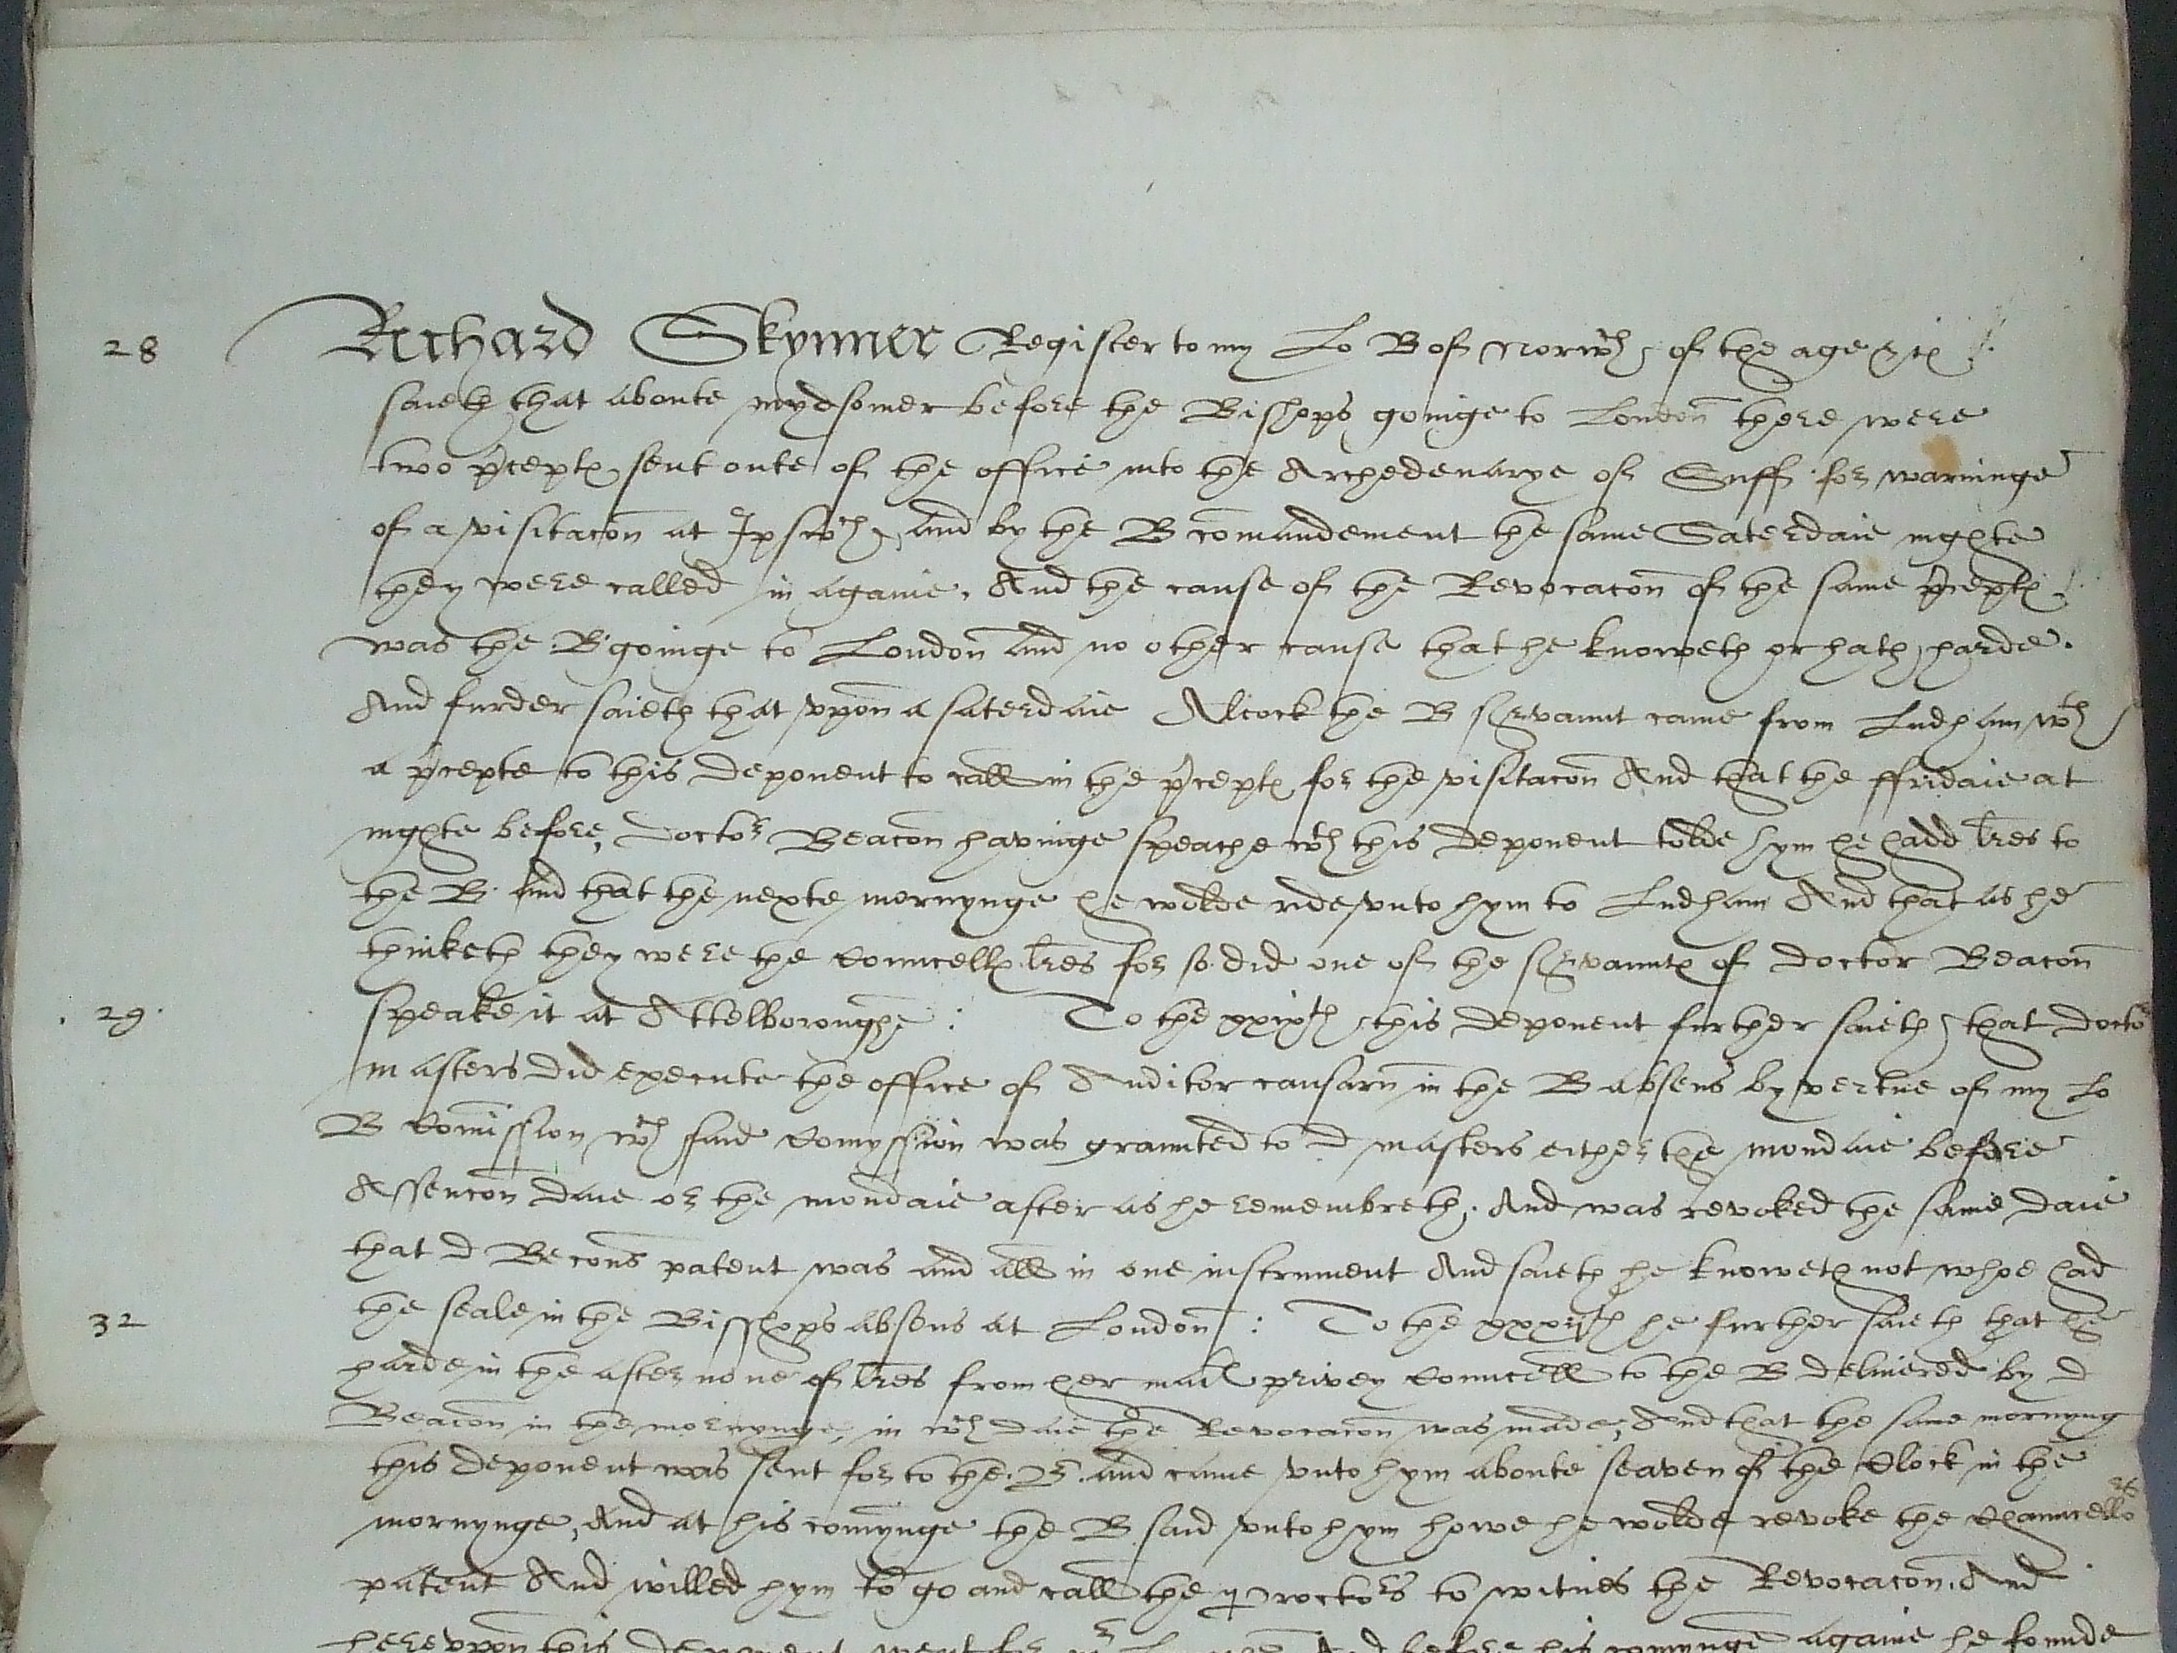 28 Richard Skynner Register to my Lo B of Norwch of the age &c
saieth that aboute mydsomer before the Bishops goinge to London there were
two pcepts sent oute of the office into the Archedenarye of Suff for warninge
of a visitacon at Ipswch, and by the B comandement the same Saterdaie nighte
they were called in againe. And the cause of the Revocacon of the same pcepts
was the B goinge to London and no other cause that he knoweth or hath harde.
And furder saieth that vppon a saterdaie Alcock the B servaunt came from Ludham wth
a pcepte to this deponent to call in the pcepts for the visitacon And that the ffridaie at
nighte before, Doctor Beacon havinge speache wth this deponent tolde hym he hadd lres to
the B. And that the nexte mornynge he wolde ride vnto hym to Ludham And that as he
thinketh they were the Councells lres for so did one of the servaunts of Doctor Beacon
29. speake it at Attelboroughe : To the xxixth this deponent further saieth, that Doctor
masters did execute the office of Auditor causarum in the B absens by vertue of my Lo
B Comission wch said Comyssion was graunted to D masters either the mondaie before
Assencon daie or the mondaie after as he remembreth. And was revoked the same daie
that D Becons patent was and all in one instrument And saieth he knoweth not whoe had
32 the seale in the Bisshops absens at London : To the xxxijth he further saieth that he
harde in the after none of lres from her maties privey Councell to the B deliuerdd by D
Beacon in the mornynge, in wch daie the Revocacon was made, And that the same mornyng
this deponent was sent for to the .B. and came vnto hym aboute seaven of the Clock in the
mornynge, And at his comynge the B said vnto hym howe he wolde revoke the Chauncellors
patent And willed hym to go and call the proctors to witnes the Revocacon. And
herevppon this deponent went for mr And before his comynge againe he founde